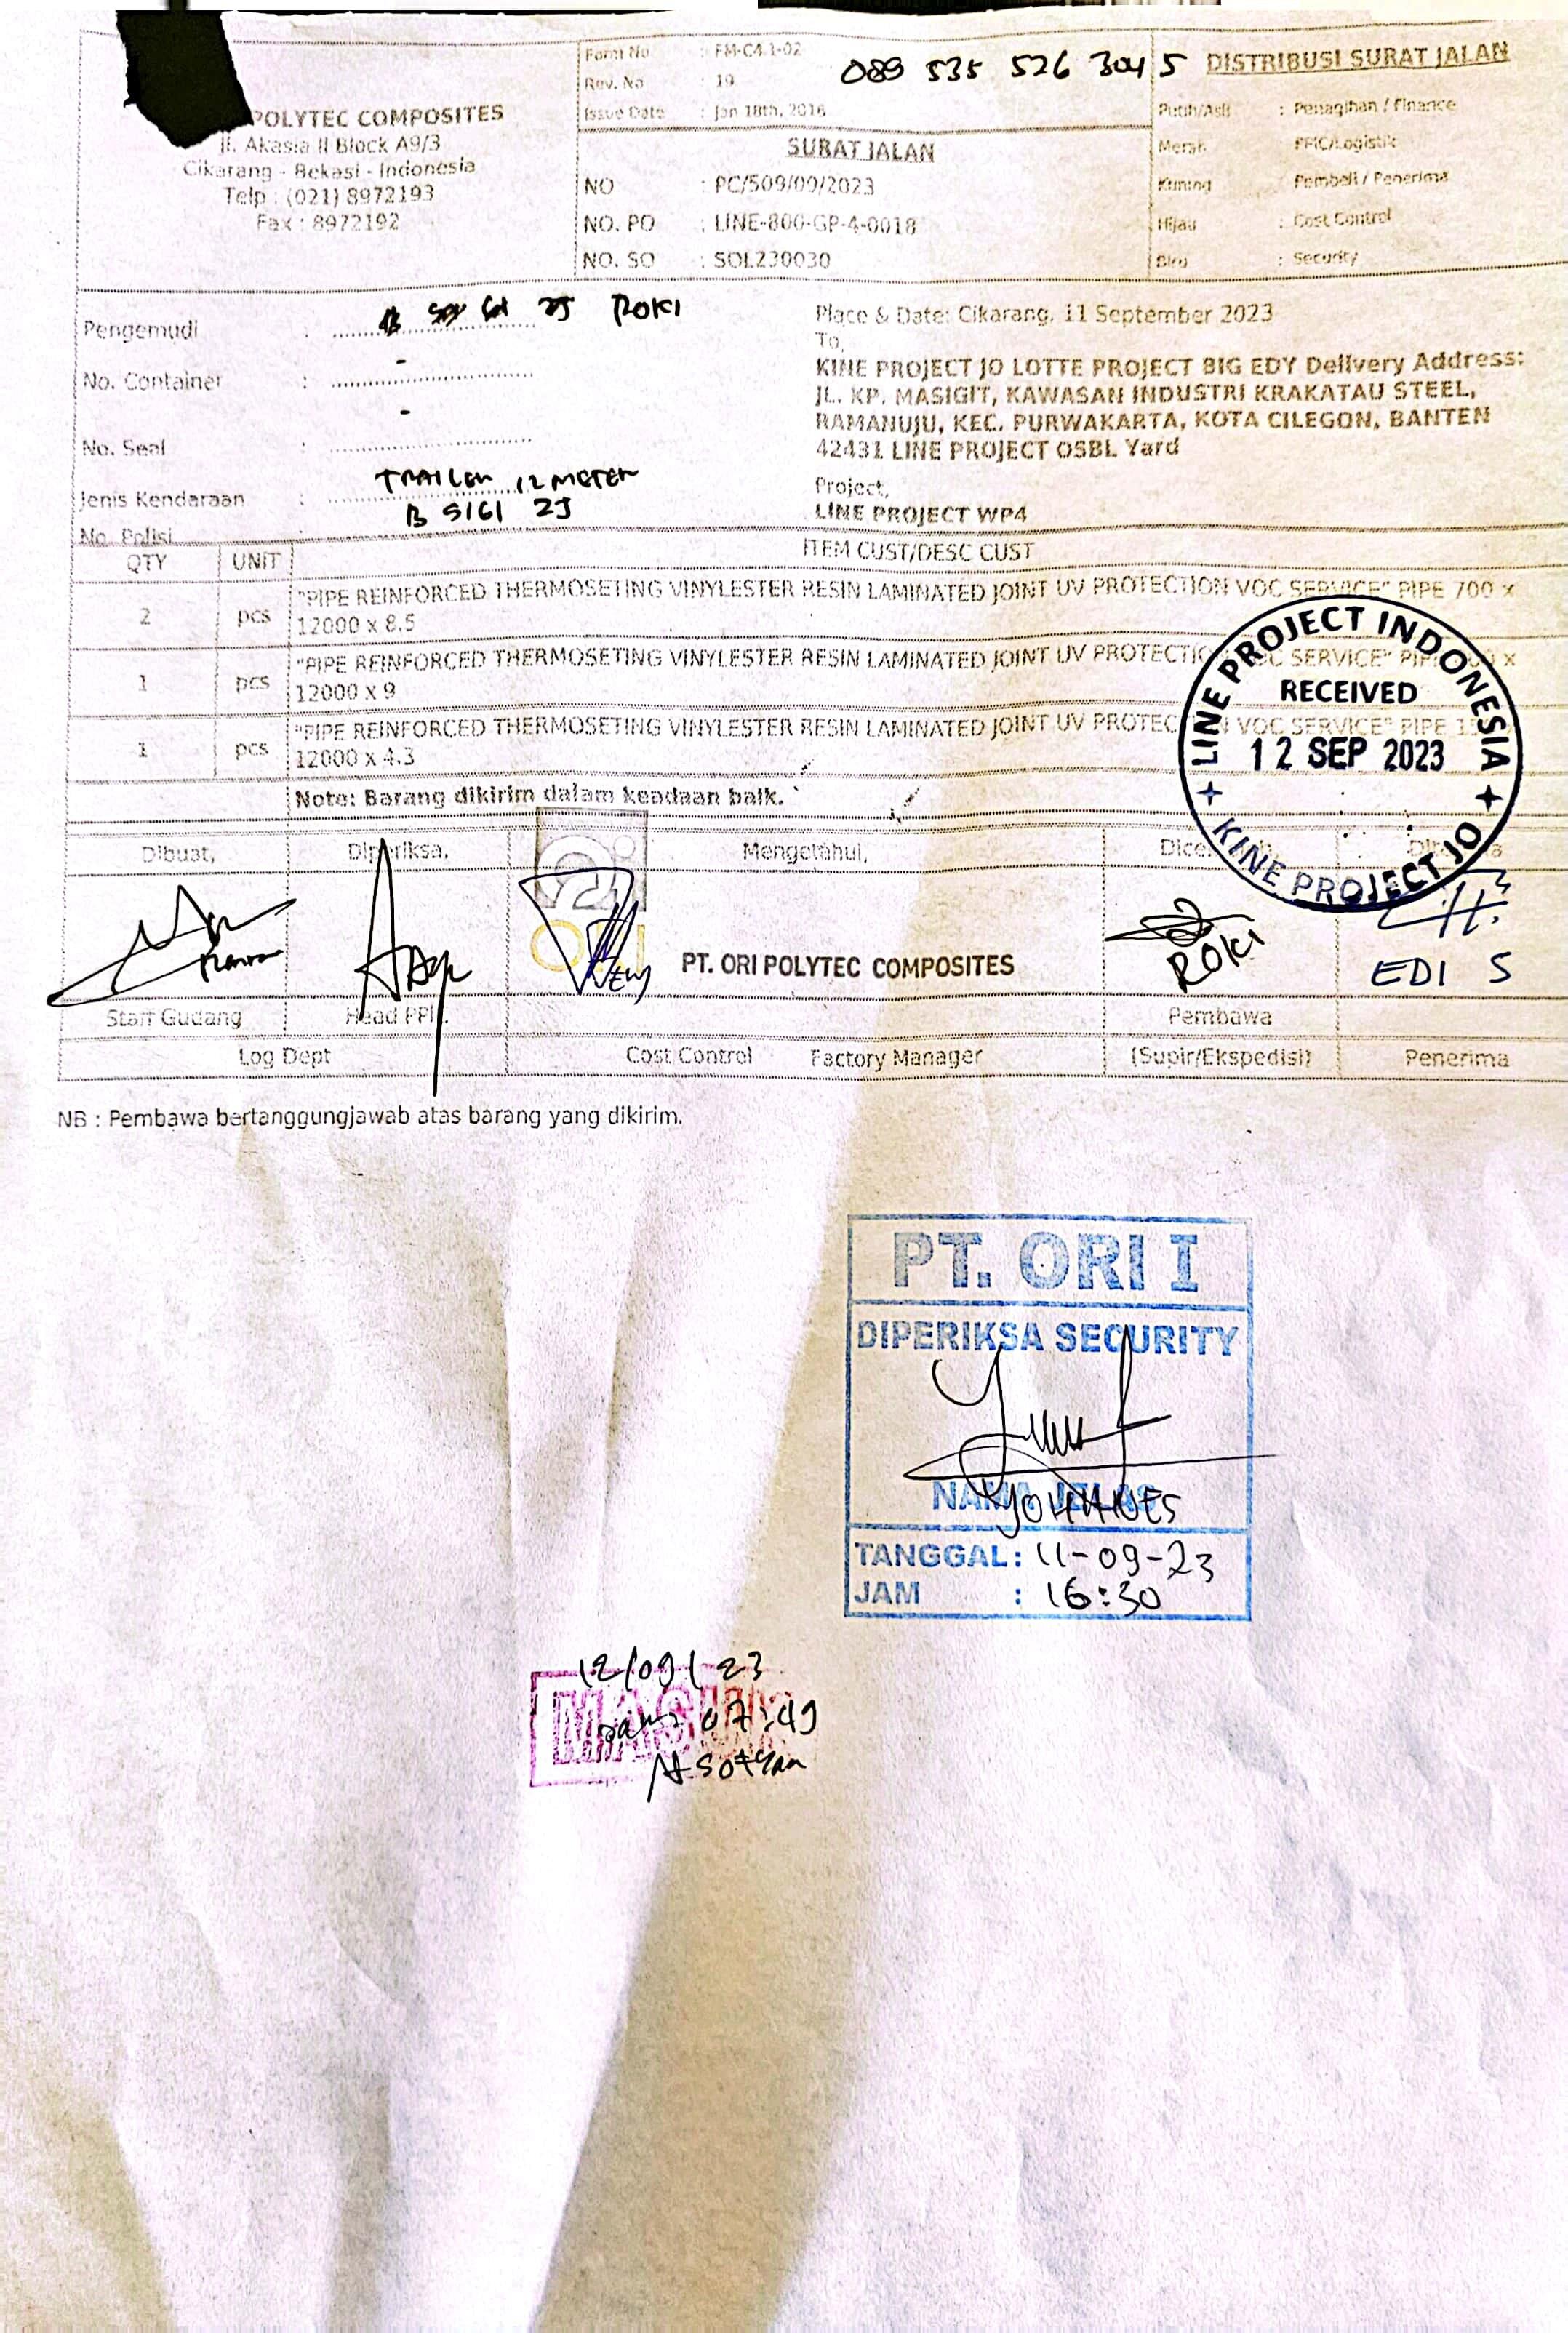 POLYTEC COMPOSITES
Jl. Akasia II Block A9/3
Cikarang - Bekasi - Indonesia
Telp : (021) 8972193
Fax : 8972192
Form No : FM-C4.1-02
Rev. No : 19
Issue Date : Jan 18th, 2016
089 535 526 304 5
SURAT JALAN
NO : PC/509/09/2023
NO. PO : LINE-800-GP-4-0018
NO. SO : SOL230030
DISTRIBUSI SURAT JALAN
Putih/Asli : Penagihan / Finance
Merah PPIC/Logistik
Kuning Pembeli / Penerima
Hijau : Cost Control
Biru : Security
Pengemudi : ROKI
No. Container : -
No. Seal : -
Jenis Kendaraan : TRAILER 12 METER
No. Polisi B 9161 ZJ
Place & Date: Cikarang, 11 September 2023
To,
KINE PROJECT JO LOTTE PROJECT BIG EDY Delivery Address:
JL. KP. MASIGIT, KAWASAN INDUSTRI KRAKATAU STEEL,
RAMANUJU, KEC. PURWAKARTA, KOTA CILEGON, BANTEN
42431 LINE PROJECT OSBL Yard
Project,
LINE PROJECT WP4
QTY UNIT ITEM CUST/DESC CUST
2 pcs "PIPE REINFORCED THERMOSETING VINYLESTER RESIN LAMINATED JOINT UV PROTECTION VOC SERVICE" PIPE 700 x
12000 x 8.5
1 pcs "PIPE REINFORCED THERMOSETING VINYLESTER RESIN LAMINATED JOINT UV PROTECTION VOC SERVICE" x
12000 x 9
1 pcs "PIPE REINFORCED THERMOSETING VINYLESTER RESIN LAMINATED JOINT UV PROTECTION VOC SERVICE" PIPE
12000 x 4.3
Note: Barang dikirim dalam keadaan baik.
LINE PROJECT INDONESIA
RECEIVED
12 SEP 2023
KINE PROJECT JO
Dibuat, Diperiksa, Mengetahui,
ORI
PT. ORI POLYTEC COMPOSITES
ROKI
EDI S
Staff Gudang Head PPIC Pembawa
Log Dept Cost Control Factory Manager (Supir/Ekspedisi) Penerima
NB : Pembawa bertanggungjawab atas barang yang dikirim.
PT. ORI I
DIPERIKSA SECURITY
NAMA JELAS
YOHANES
TANGGAL : 11-09-23
JAM : 16:30
12/09/23
MASUK
07:49